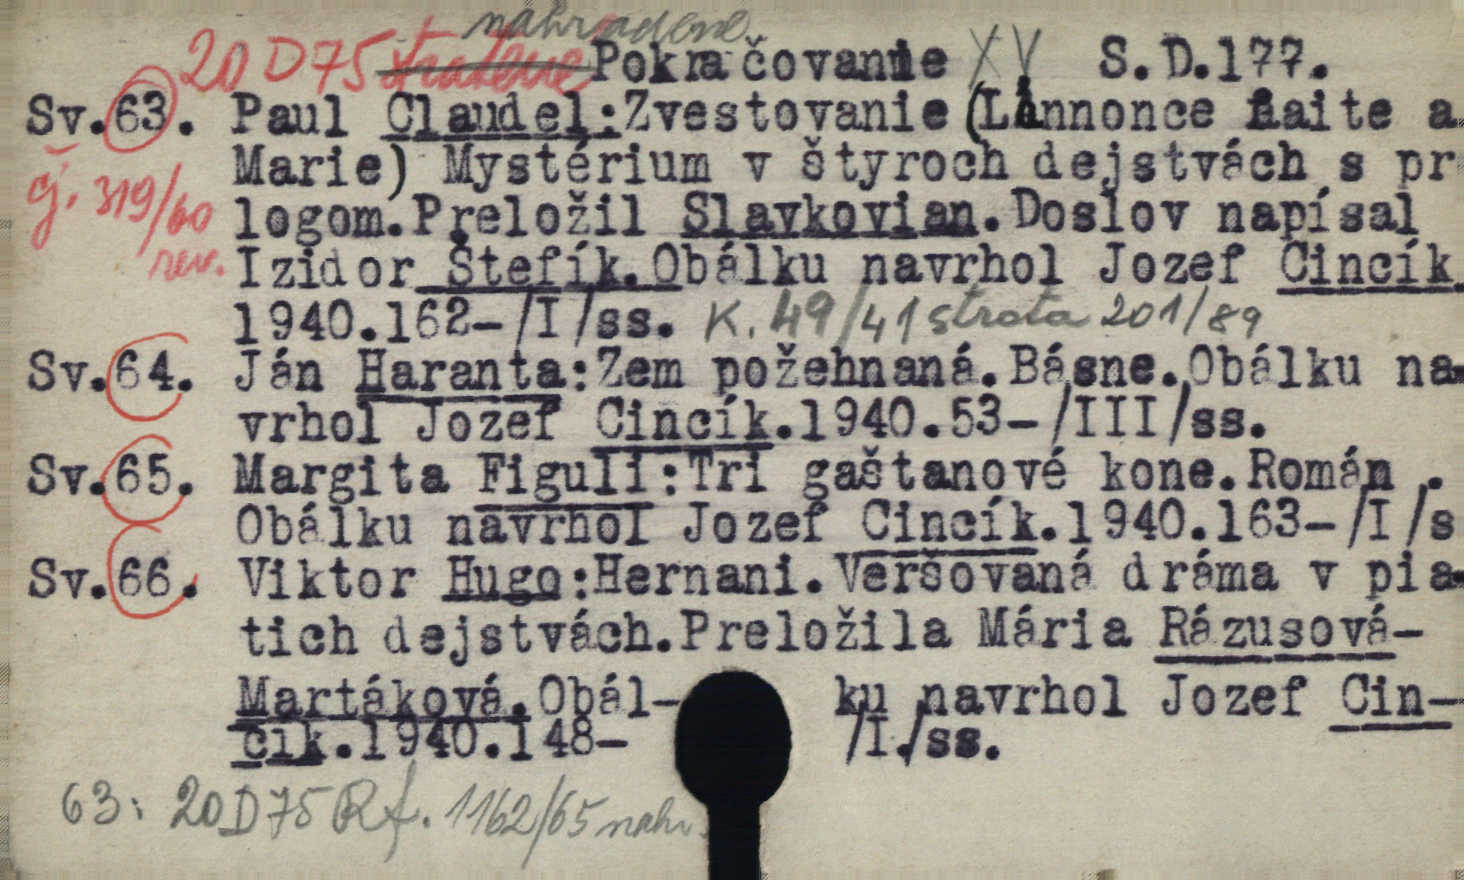 nahradené
20 D 75 stratené Pokračovanie XV S.D.177.
Sv.63. Paul Claudel:Zvestovanie (LAnnonce faite a
Marie) Mystérium v štyroch dejstvách s pr
čj. 319/60 logom.Preložil Slavkovian.Doslov napísal
rev. Izidor Štefík.Obálku navrhol Jozef Cincík.
1940.162-/I/ss. K. 49/41 strata 201/89
Sv.64. Ján Haranta:Zem požehnaná.Básne.Obálku na-
vrhol Jozef Cincík.1940.53-/III/ss.
Sv.65. Margita Figuli:Tri gaštanové kone.Román .
Obálku navrhol Jozef Cincík.1940.163-/I/s
Sv.66. Viktor Hugo:Hernani.Veršovaná dráma v pia-
tich dejstvách.Preložila Mária Rázusová-
Martáková.Obál- ku navrhol Jozef Cin-
cík.1940.148- /I./ss.
63: 20 D 75 Rf. 1162/65 nahr.